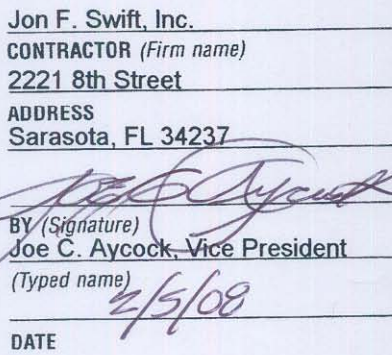 Jon F. Swift, Inc.
CONTRACTOR (Firm name)
2221 8th Street
ADDRESS
Sarasota, FL 34237
Joe C Aycock
BY (Signature)
Joe C. Aycock, Vice President
(Typed name)
2/5/08
DATE